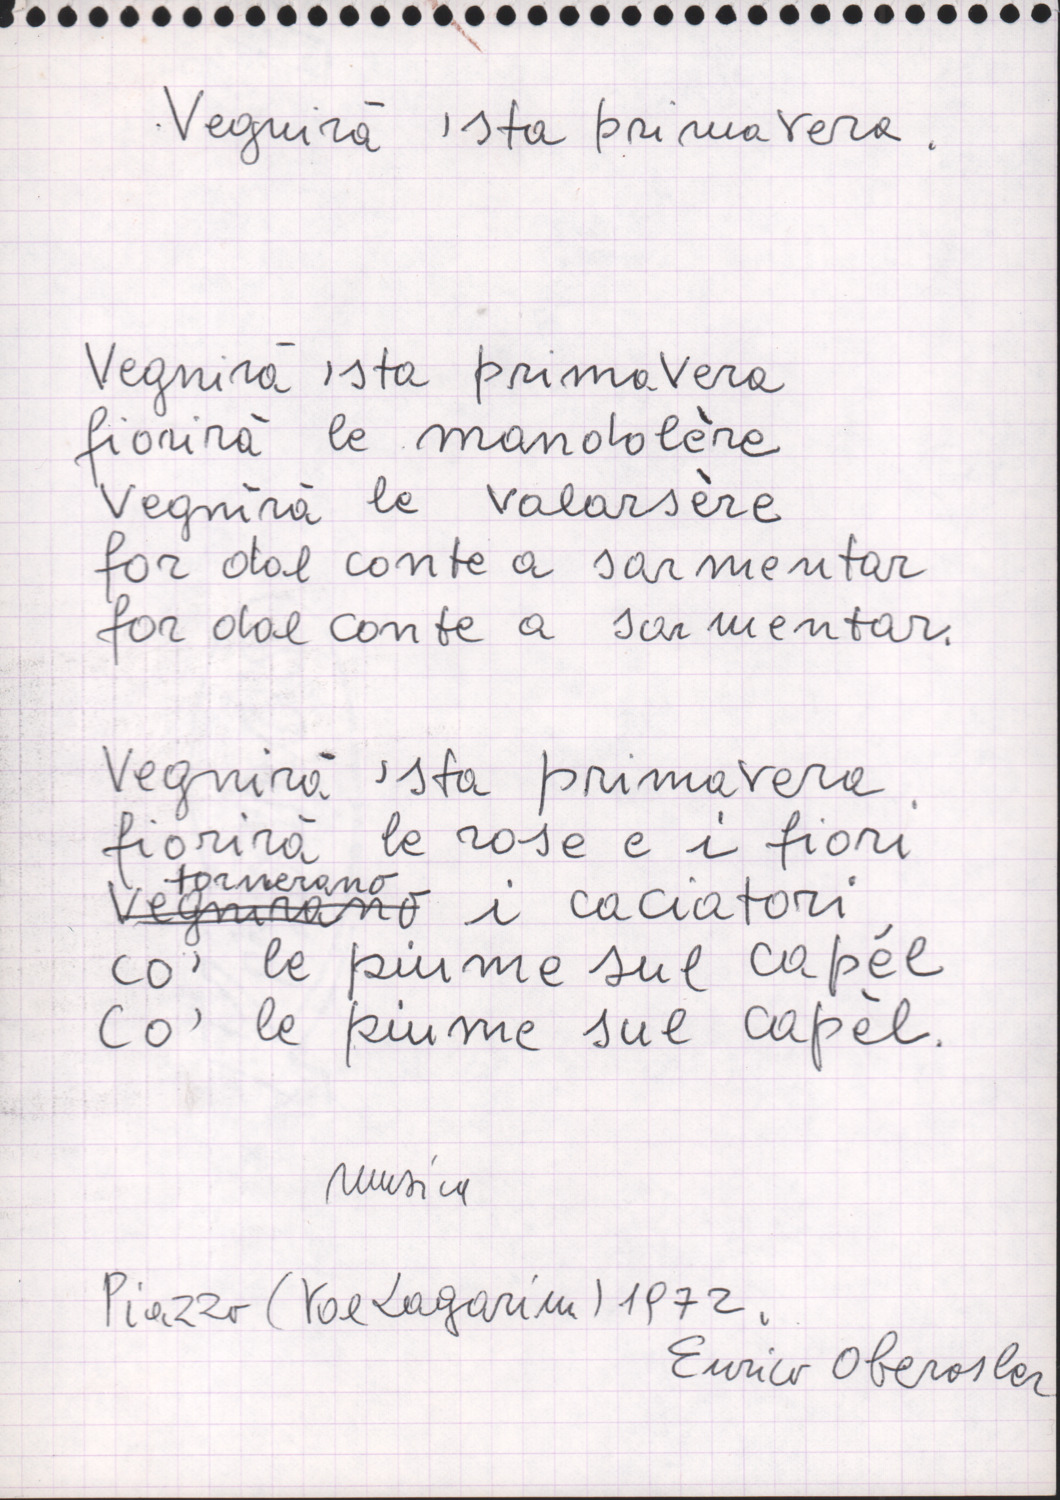 Vegnirā 'sta primavera.
Vegnirā 'sta primavera
fiorirà le mandolère
Vegnirà le valarsère
for dal conte a sarmentar
for dal conte a sarmentar.
Vegnirà 'sta primavera
fiorirà le rose e i fiori
tornerano
Vegnirano i caciatori
co' le piume sul capél
Co' le piume sul capèl.
musica
Piazzo (Val Lagarina) 1972.
Enrico Oberosler